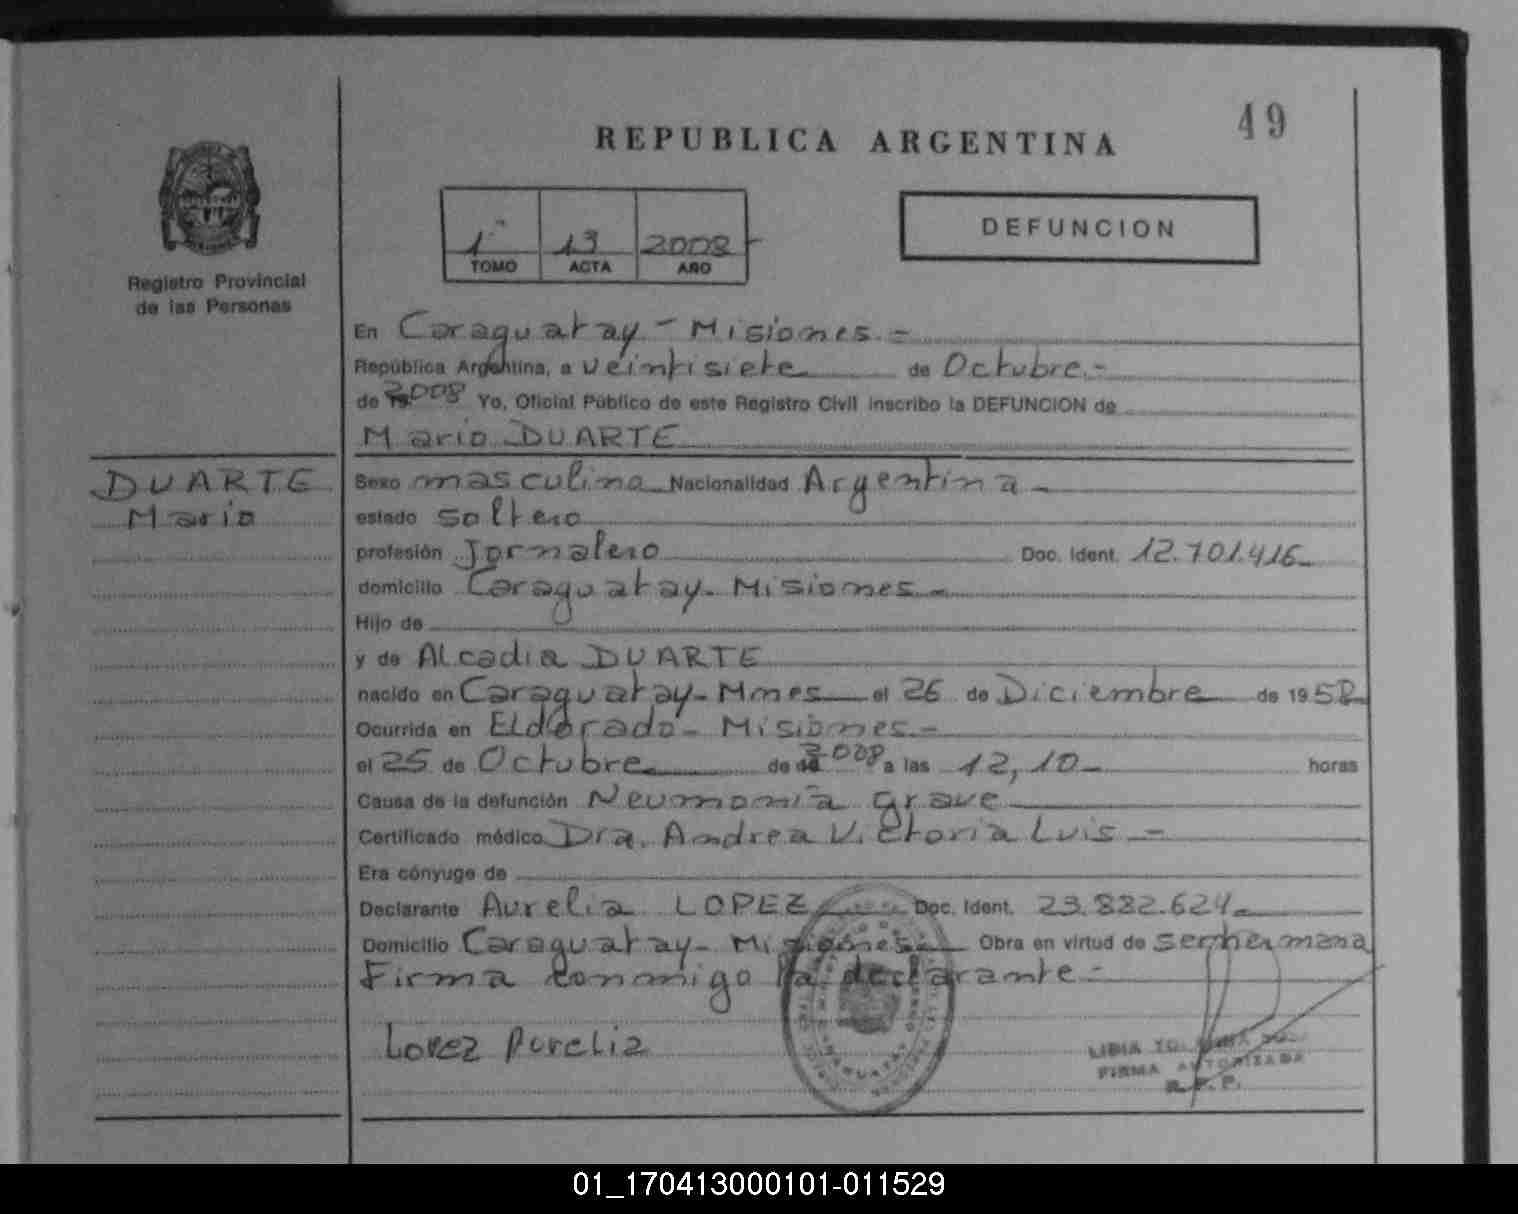 49
REPUBLICA ARGENTINA
1º 13 2008
TOMO ACTA AÑO
DEFUNCION
Registro Provincial
de las Personas
En Caraguatay - Misiones.-
República Argentina, a veintisiete de Octubre.-
de 2008 Yo, Oficial Público de este Registro Civil inscribo la DEFUNCION de
Mario DUARTE
DUARTE
Mario
Sexo masculino Nacionalidad Argentina -
estado soltero
profesión Jornalero Doc. Ident. 12.701.416-
domicilio Caraguatay- Misiones-
Hijo de
y de Alcadia DUARTE
nacido en Caraguatay- Mnes el 26 de Diciembre de 1958
Ocurrida en ELdorado- Misiones.-
el 25 de Octubre de 2008 a las 12,10- horas
Causa de la defunción Neumonía grave
Certificado médico Dra. Andrea Victoria Luis -
Era cónyuge de
Declarante Aurelia LOPEZ Doc. Ident. 23.882.624-
Domicilio Caraguatay- Misiones- Obra en virtud de ser hermana
Firma conmigo la declarante-
Lopez Aurelia
LIBIA
FIRMA AUTORIZADA
R.P.P.
01_170413000101-011529